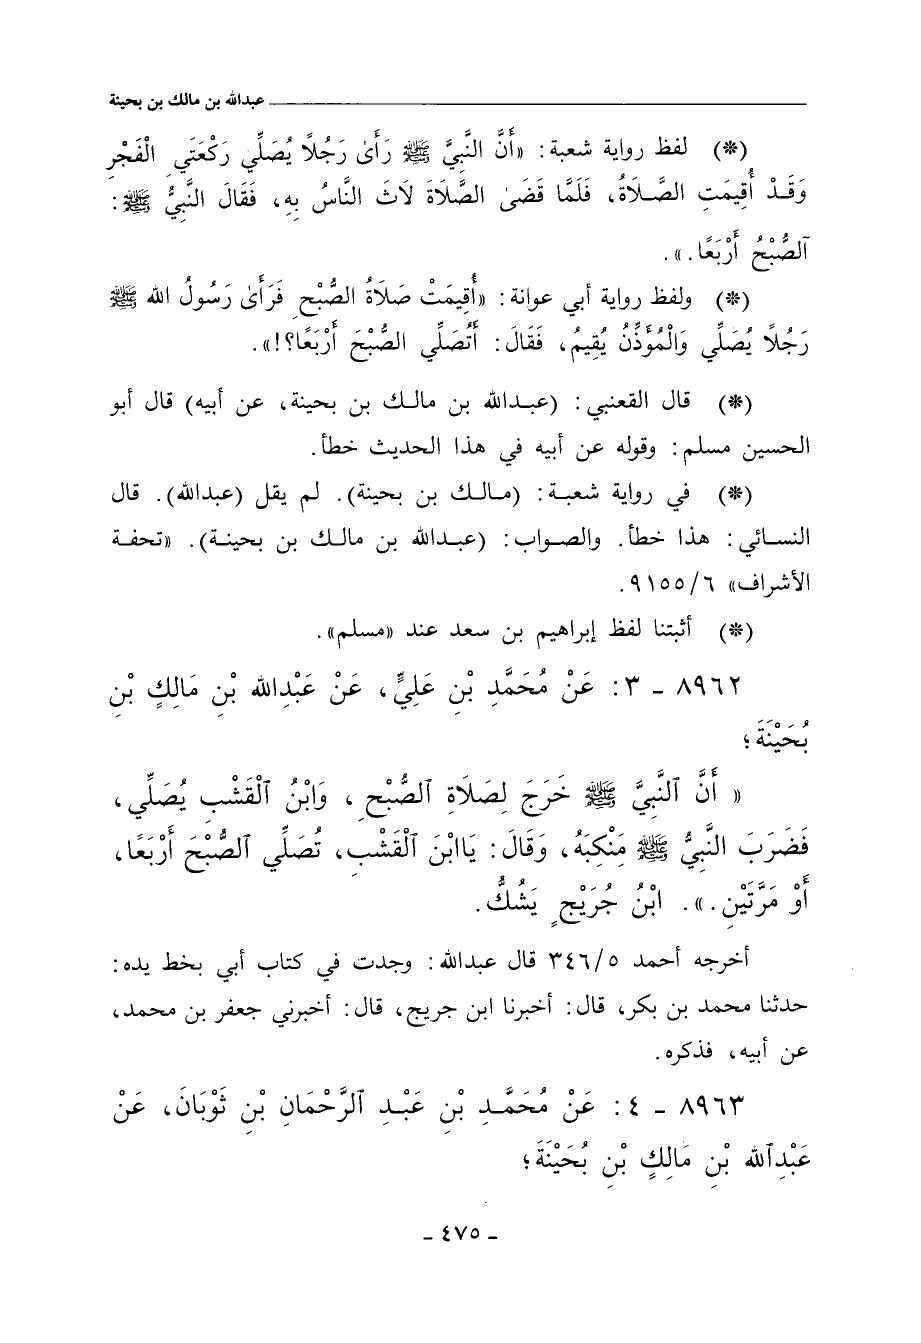 عبدالله بن مالك بن بحينة
(*) لفظ رواية شعبة: «أَنَّ النَّبِيَّ ﷺ رَأَىٰ رَجُلًا يُصَلِّي رَكْعَتَيِ الْفَجْرِ
وَقَدْ أُقِيمَتِ الصَّلَاةُ، فَلَمَّا قَضَىٰ الصَّلَاةَ لَاثَ النَّاسُ بِهِ، فَقَالَ النَّبِيُّ ﷺ:
ٱلصُّبْحُ أَرْبَعًا.».
(*) ولفظ رواية أبي عوانة: «أُقِيمَتْ صَلَاةُ الصُّبْحِ فَرَأَىٰ رَسُولُ الله ﷺ
رَجُلًا يُصَلِّي وَالْمُؤَذِّنُ يُقِيمُ، فَقَالَ: أَتُصَلِّي الصُّبْحَ أَرْبَعًا؟!».
(*) قال القعنبي: (عبدالله بن مالك بن بحينة، عن أبيه) قال أبو
الحسين مسلم: وقوله عن أبيه في هذا الحديث خطأ.
(*) في رواية شعبة: (مالك بن بحينة). لم يقل (عبدالله). قال
النسائي: هذا خطأ. والصواب: (عبدالله بن مالك بن بحينة). «تحفة
الأشراف» ٩١٥٥/٦.
(*) أثبتنا لفظ إبراهيم بن سعد عند «مسلم».
٨٩٦٢ - ٣: عَنْ مُحَمَّدِ بْنِ عَلِيٍّ، عَنْ عَبْدِالله بْنِ مَالِكٍ بْنِ
بُحَيْنَةَ؛
« أَنَّ ٱلنَّبِيَّ ﷺ خَرَجَ لِصَلَاةِ ٱلصُّبْحِ، وَابْنُ ٱلْقَشْبِ يُصَلِّي،
فَضَرَبَ النَّبِيُّ ﷺ مَنْكِبَهُ، وَقَالَ: يَاابْنَ ٱلْقَشْبِ، تُصَلِّي ٱلصُّبْحَ أَرْبَعًا،
أَوْ مَرَّتَيْنِ.». ابْنُ جُرَيْجٍ يَشُكُّ.
أخرجه أحمد ٣٤٦/٥ قال عبدالله: وجدت في كتاب أبي بخط يده:
حدثنا محمد بن بكر، قال: أخبرنا ابن جريج، قال: أخبرني جعفر بن محمد،
عن أبيه، فذكره.
٨٩٦٣ - ٤: عَنْ مُحَمَّدِ بْنِ عَبْدِ ٱلرَّحْمَانِ بْنِ ثَوْبَانَ، عَنْ
عَبْدِٱلله بْنِ مَالِكٍ بْنِ بُحَيْنَةَ؛
- ٤٧٥ -